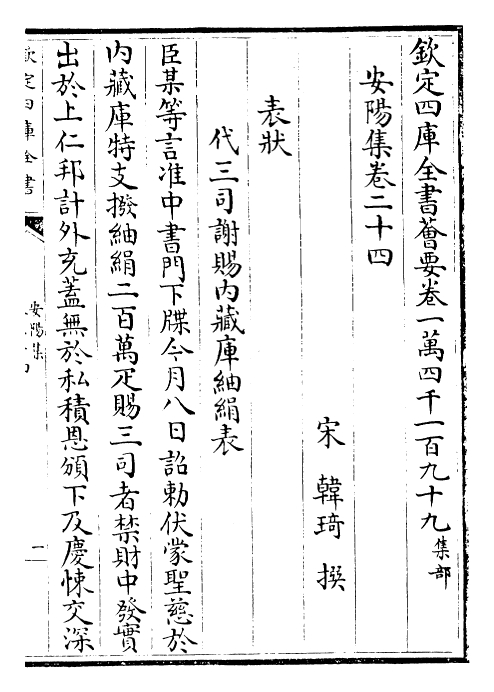 欽定四庫全書薈要卷一萬四千一百九十九集部
安陽集卷二十四
宋 韓琦 撰
表狀
代三司謝賜內藏庫紬絹表
臣某等言准中書門下牒今月八日詔勅伏蒙聖慈於
內藏庫特支撥紬絹二百萬疋賜三司者禁財中發實
出於上仁邦計外充蓋無於私積恩頒下及慶悚交深
欽定四庫全書
安陽集
一